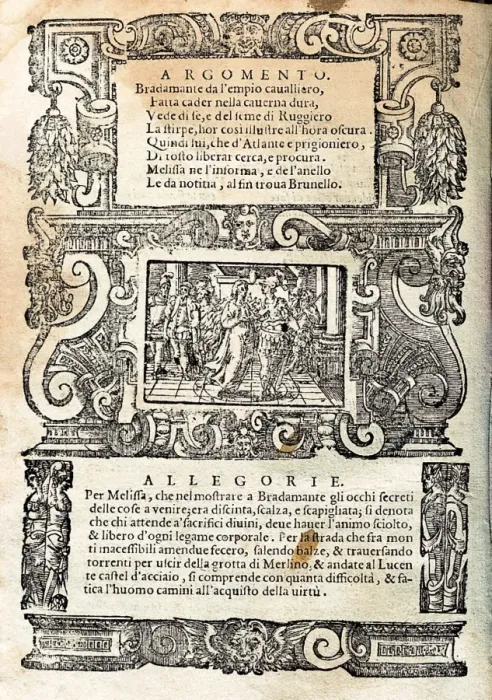 ARGOMENTO.
Bradamante da l'empio caualliero,
Fatta cader nella cauerna dura,
Vede di se, e del seme di Ruggiero
La stirpe, hor così illustre all'hora oscura.
Quindi lui, che d'Atlante e prigioniero,
Di tosto liberar cerca, e procura.
Melissa ne l'informa, e de l'anello
Le da notitia, al fin troua Brunello.
ALLEGORIE.
Per Melissa, che nel mostrare a Bradamante gli occhi secreti
delle cose a venire; era discinta, scalza, e scapigliata; si denota
che chi attende a' sacrifici diuini, deue hauer l'animo sciolto,
& libero d'ogni legame corporale. Per la strada che fra mon
ti inacessibili amendue fecero, salendo balze, & trauersando
torrenti per uscir della grotta di Merlino, & andate al Lucen
te castel d'acciaio, si comprende con quanta difficoltà, & fa-
tica l'huomo camini all'acquisto della uirtù.